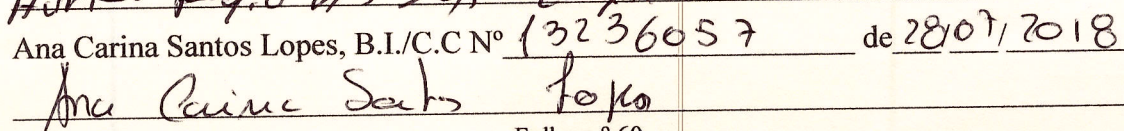 Ana Carina Santos Lopes, B.I./C.C Nº 13236057 de 28/07/2018
Ana Carina Santos Lopes